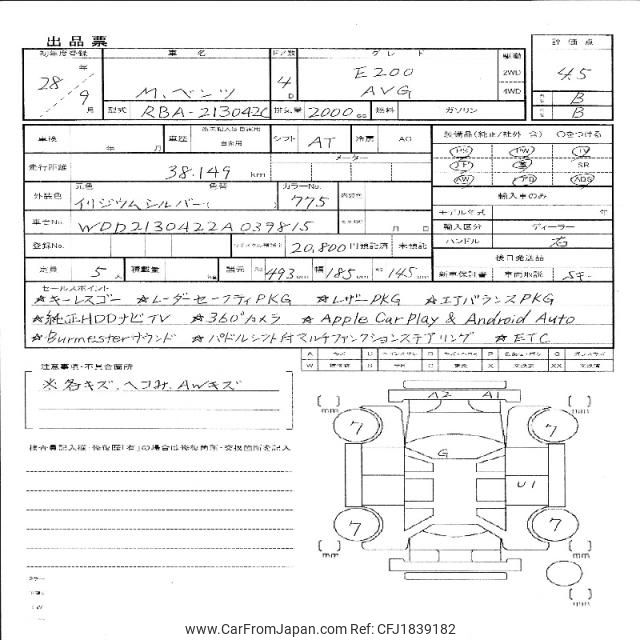 出品票
初年度登録 車名 ドア数 グレード 駆動 評価点
28年 9月 M.ベンツ 4D E200 AVG 2WD 4WD 4.5
B
B
型式 RBA-213042C 排気量 2000cc 燃料 ガソリン
車検 年 月 車歴 自家用 シフト AT 冷房 AC
設備品(純正/社外 含) ○をつける
走行距離 38.149 km メーター
PS PW TV
SR
AW ABS
外装色 元色 色替 カラーNo.
イリジウムシルバー( 775
輸入車のみ
モデル年式 年
車台No. WDD2130422A039815 月 日
輸入区分 ディーラー
登録No. 20,800 円預託済 未預託
ハンドル 右
後日発送品
定員 5人 積載量 kg 諸元 長 493cm 幅 185cm 高 145cm
新車保証書 車両取説 Sキー
セールスポイント
☆キーレスゴー ☆レーダーセーフティPKG ☆レザーPKG ☆エアバランスPKG
☆純正HDDナビTV ☆360°カメラ ☆Apple CarPlay & Android Auto
☆Burmesterサウンド ☆パドルシフト付マルチファンクションステアリング ☆ETC
注意事項・不具合箇所
※各キズ、ヘコみ、AWキズ
検査員記入欄・修復歴「有」の場合は修復箇所・交換箇所を記入
A2 A1
[ ]mm 7 7 [ ]mm
G
U1
[ ]mm 7 7 [ ]mm
[ ]mm
www.CarFromJapan.com Ref: CFJ1839182